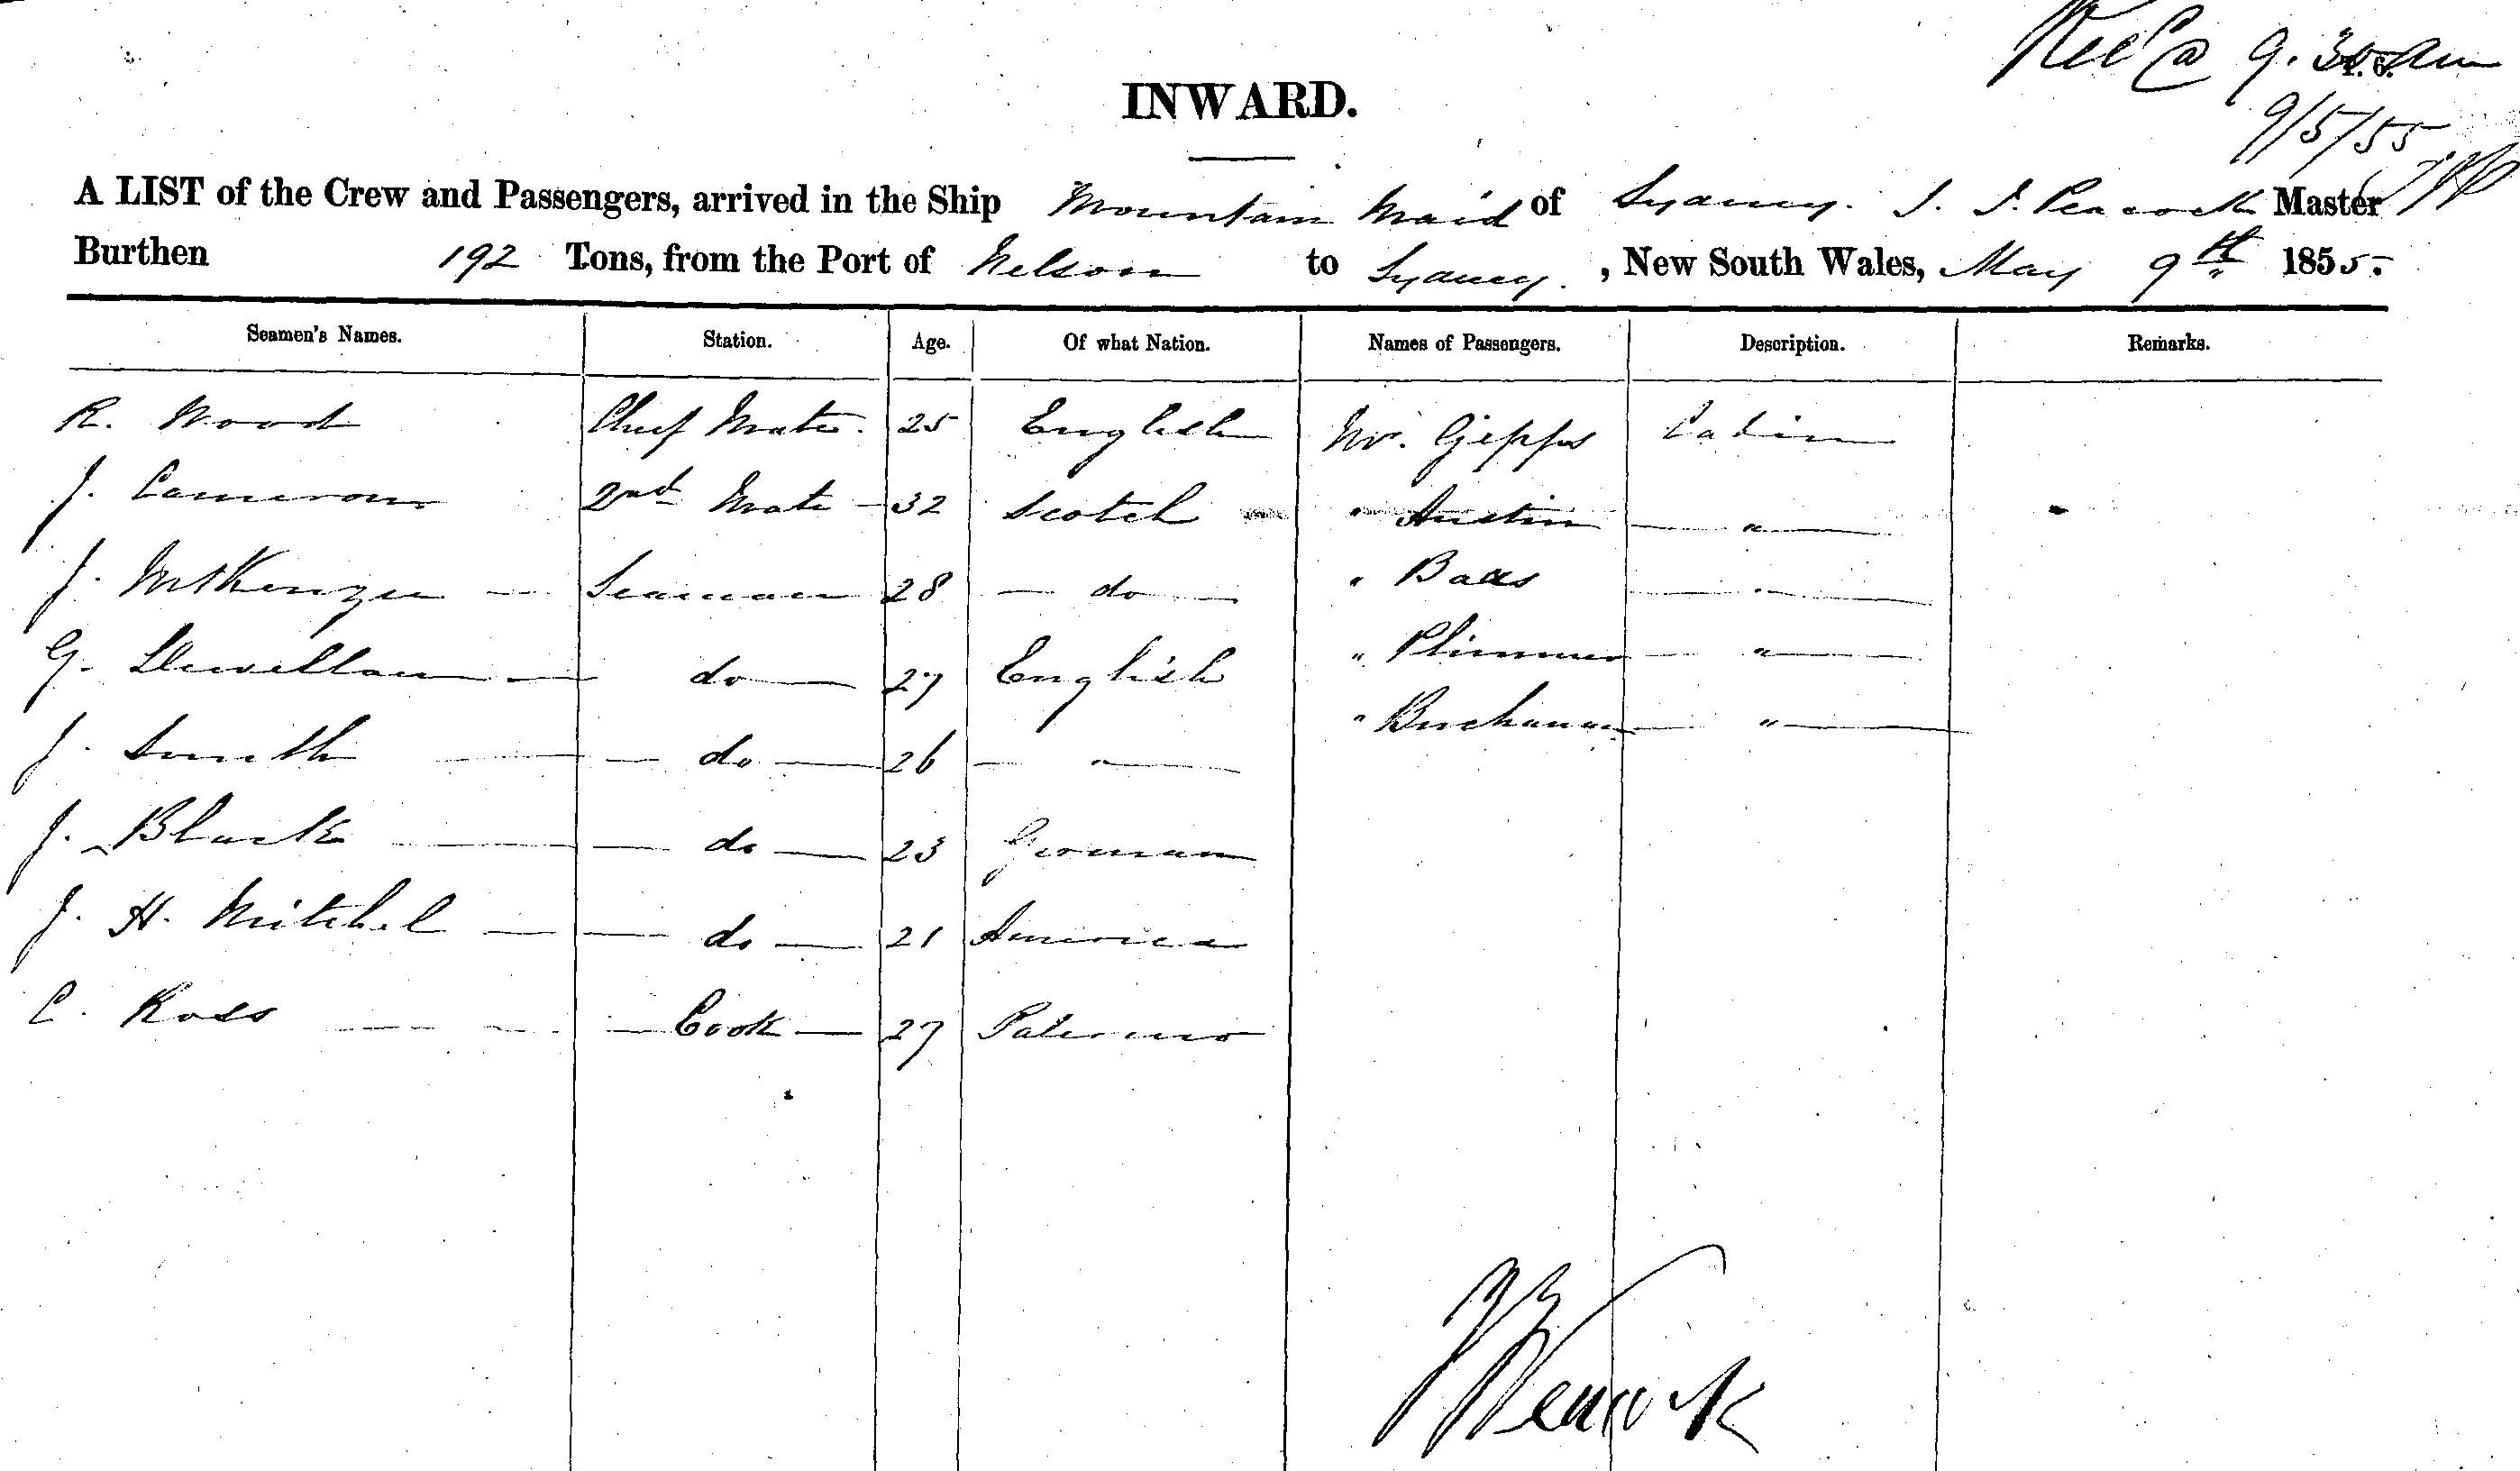 Recd @ 9.30 Am
9/5/55
INWARD.
A LIST of the Crew and Passengers, arrived in the Ship Mountain Maid of Sydney. J. J. Peacock Master
Burthen 192 Tons, from the Port of Nelson to Sydney, New South Wales, May 9th 1855.
Seamen's Names. Station. Age. Of what Nation. Names of Passengers. Description. Remarks.
R. Wood Chief Mate. 25 English Mr. Gipps Cabin
J. Cameron 2nd Mate - 32 Scotch " Austin — " —
J. McKenzie — Seaman 28 — do — " — " —
G. Llewellan — do — 27 English " Plimmer — " —
J. Smith — do — 26 — " — " Buchanan — " —
J. Black — do — 23 German
J. H. Mitchel — do — 21 America
C. Ross — Cook — 27 Palermo
J J Peacock